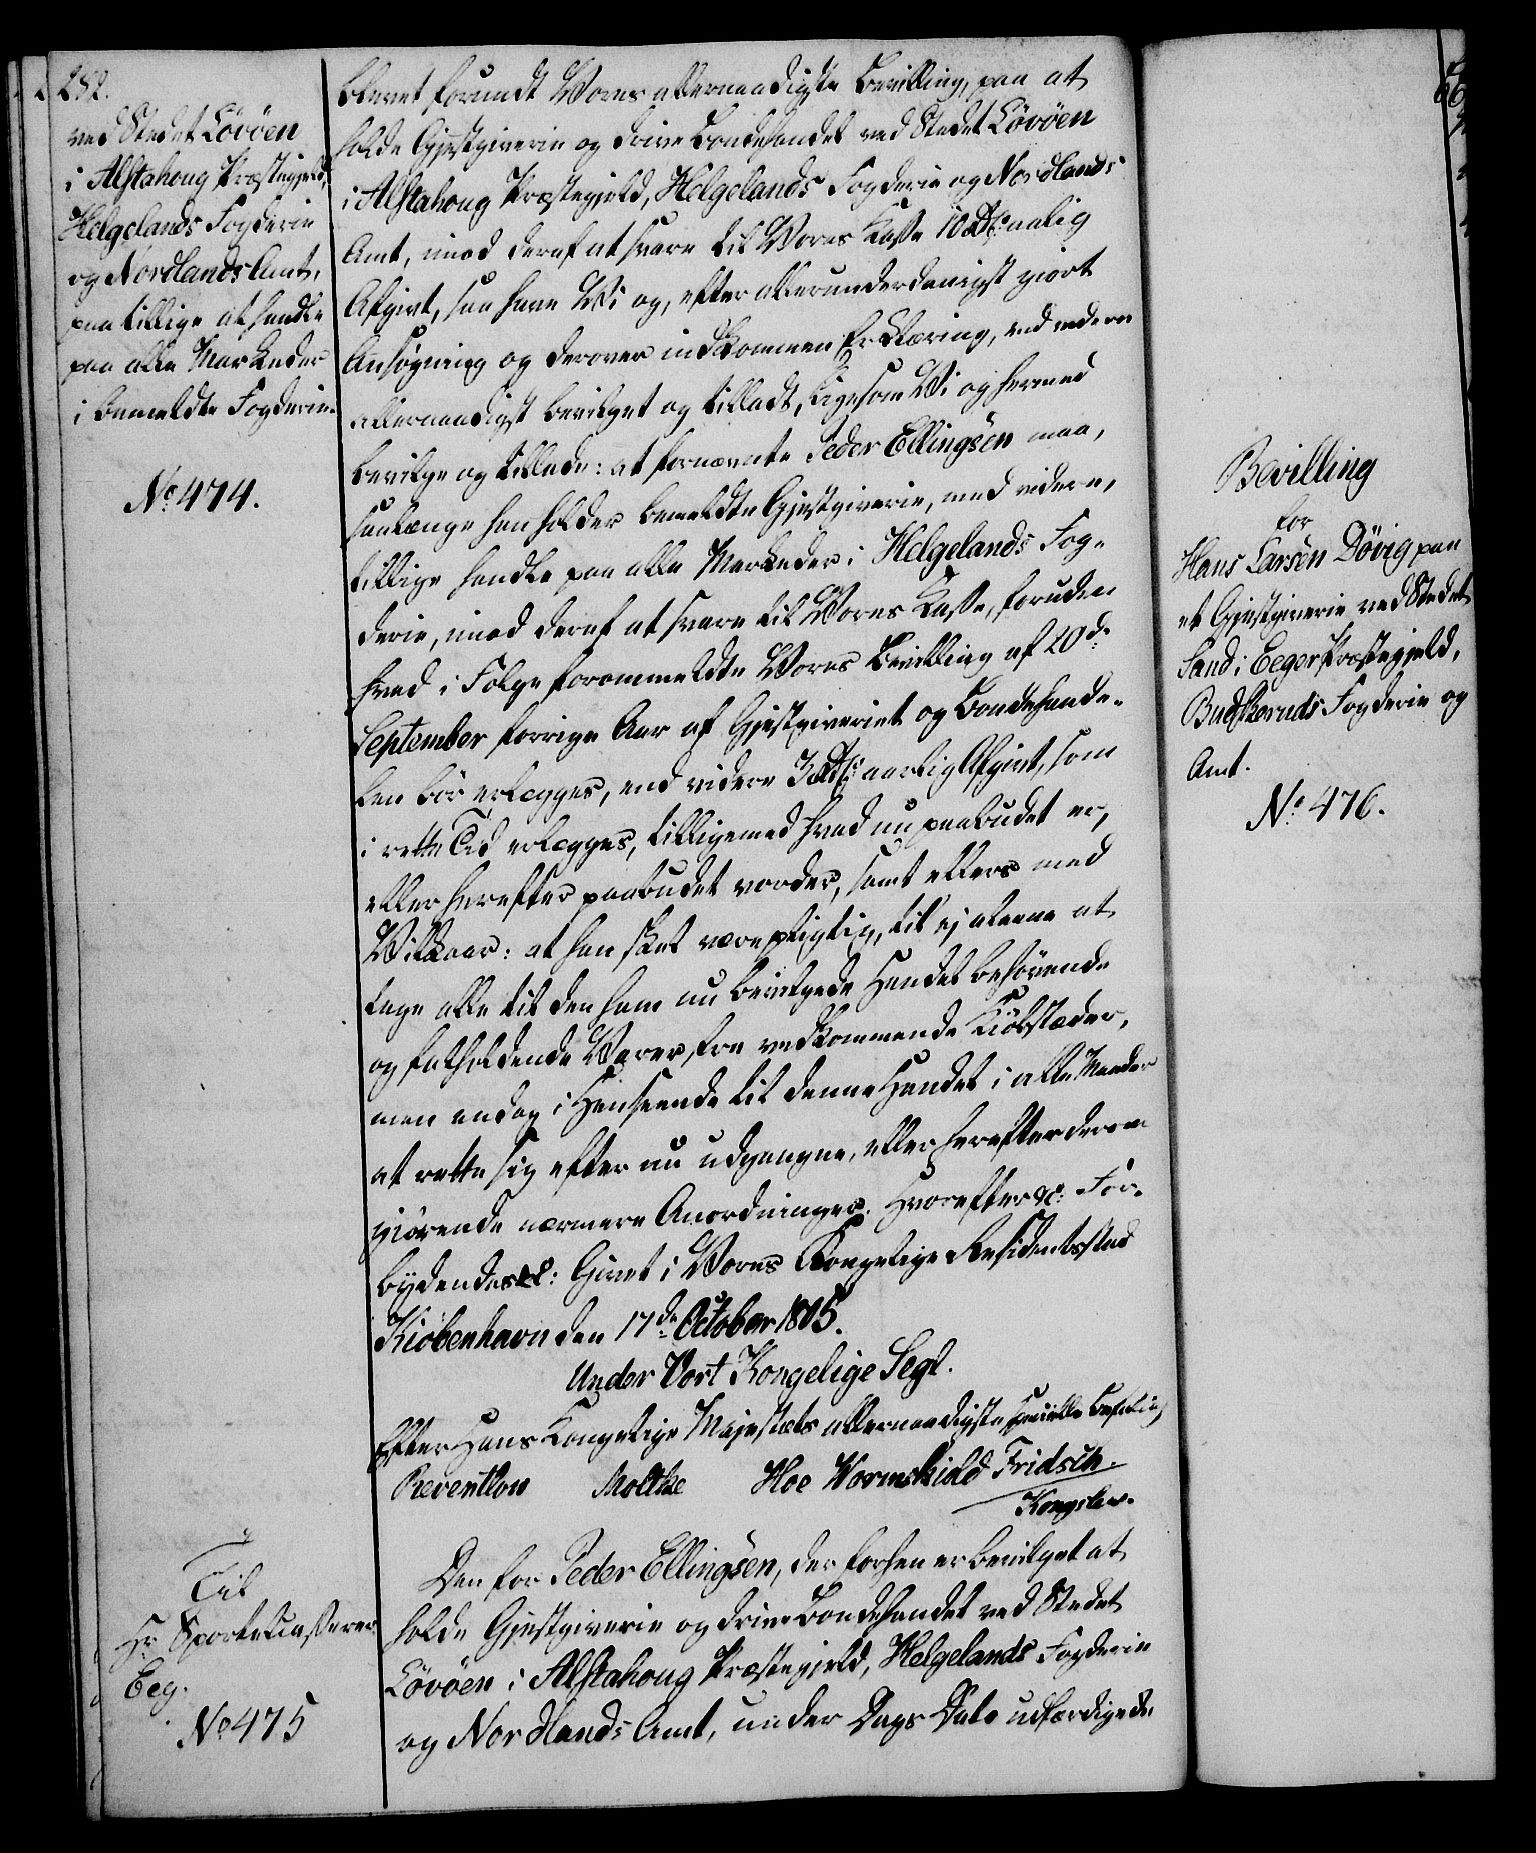 282.
ved Stedet Lövöen
i Alstahoug Præstegjeld,
Helgelands Fogderie
og Nordlands Amt,
paa tillige at handle
paa alle Markeder
i bemeldte Fogderie.
No 474.
blevet forundt Vores allernaadigste Bevilling, paa at
holde Gjestgiverie og drive Bondehandel ved Stedet Lövöen
i Alstahoug Præstegjeld, Helgelands Fogderie og Nordlands
Amt, imod deraf at svare til Vores Kasse 10 Rd: aarlig
Afgivt, saa have Vi og, efter allerunderdanigst giort
Ansøgning og derover indkommen Erklæring, end videre
allernaadigst bevilget og tilladt, ligesom Vi og hermed
bevilge og tillade: at fornævnte Peder Ellingsen maa,
saalænge han holder bemeldte Gjestgiverie, med videre,
tillige handle paa alle Markeder i Helgelands Fog-
derie, imod deraf at svare til Vores Kasse, foruden
hvad i Følge forommeldte Vores Bevilling af 20de
September forrige Aar af Gjestgiveriet og Bondehande-
len bör erlægges, end videre 3 Rd: aarlig Afgivt, som
i rette Tid erlægges, tilligemed hvad nu paabudet er,
eller herefter paabudet vorder, samt ellers med
Vilkaar: at han skal være pligtig, til ej aleene at
tage alle til den ham nu bevilgede Handel behövende
og faldende Varer, fra vedkommende Kiöbstæder,
men endog i Henseende til denne Handel i alle Maader
at rette sig efter nu udgangne, eller herefter derom
giörende nærmere Anordninger. Hvorefter &c: For-
bydendes &c: Givet i Vores Kongelige Residentsstad
Kiöbenhavn den 17de October 1805.
Under Vort Kongelige Segl.
Efter Hans Kongelige Majestæts allernaadigste specielle Befaling
Reventlow Moltke Hoe Wormskiold Fridsch.
Kongslew.
Til
Hr. Sportelcasserer
Eeg.
No 475
Den for Peder Ellingsen, der forhen er bevilget at
holde Gjestgiverie og drive Bondehandel ved Stedet
Lövöen i Alstahoug Præstegjeld, Helgelands Fogderie
og Nordlands Amt, under Dags Dato udfærdigede
Bevilling
for
Hans Larsen Dövig paa
et Gjestgiverie ved Stedet
Sand i Eeger Præstegjeld,
Budskeruds Fogderie og
Amt.
No 476.